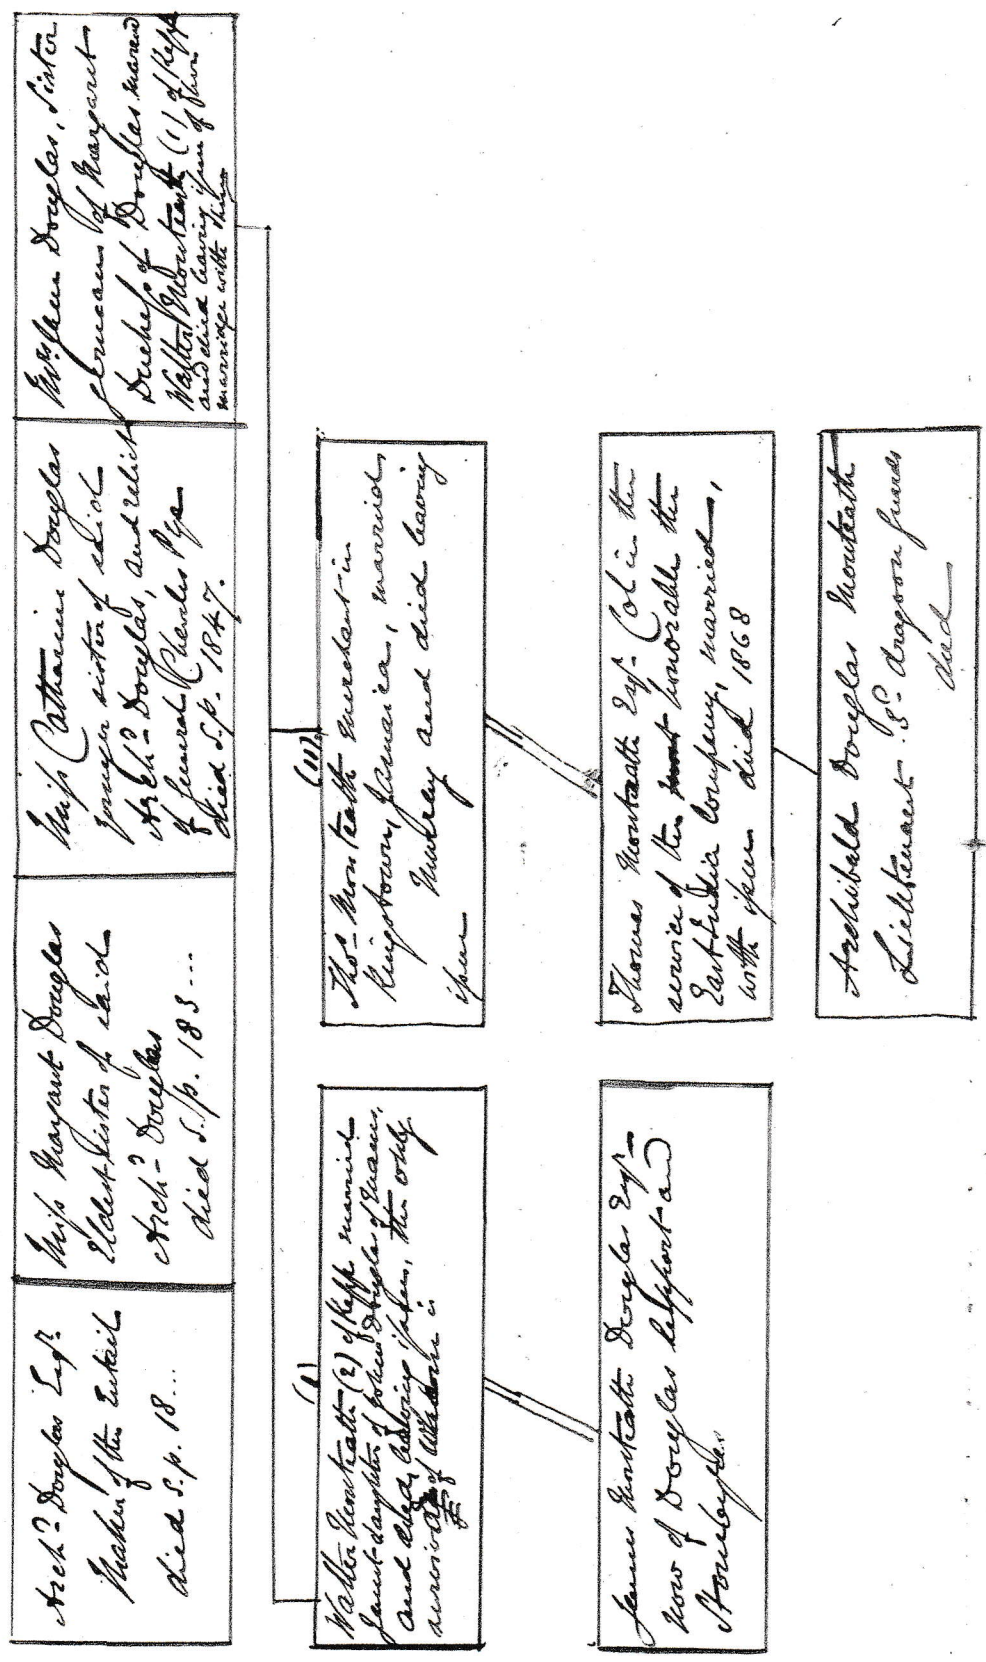 Archd Douglas Esqr.
Maker of the Entail
died s.p. 18...
Miss Margaret Douglas
Eldest sister of said
Archd Douglas
died s.p. 183...
Miss Catharine Douglas
younger sister of said
Archd Douglas, and relict
of General Charles
died s.p. 1847.
Mrs Jean Douglas, Sister
german of Margaret
Duchess of Douglas married
Walter Monteath (1) of Kepp
and died leaving issue of this
marriage with him
(I)
Walter Monteath (2) of Kepp married
Janet daughter of John Douglas of Mains,
and died leaving issue, the only
survivor of whom is
(II)
Thos. Monteath merchant in
Kingstown, Jamaica, married
Murdrey and died leaving
issue
James Monteath Douglas Esqr
now of Douglas Support and
Stonebyres
Thomas Monteath Esqr. Col in the
service of the honorable the
East India Company, married,
with issue died 1868
Archibald Douglas Monteath
Lieutenant 3d dragoon guards
died